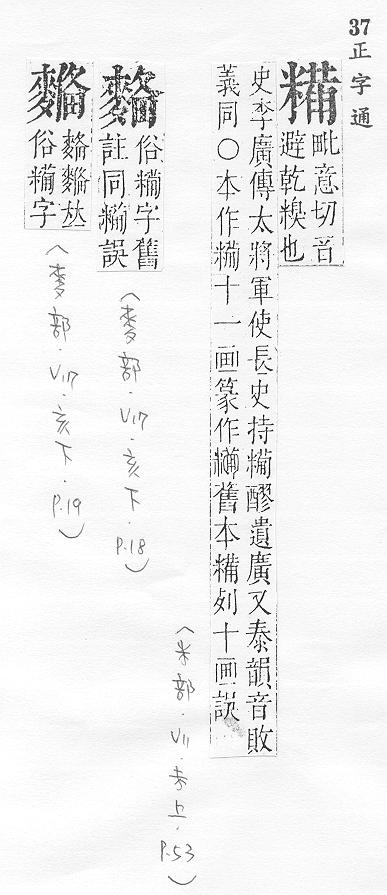 37正字通
糒
毗意切音
避乾糗也
史李廣傳太將軍使長史持糒醪遺廣又泰韻音敗
義同○本作糒十一画篆作糒舊本糒列十画誤
(米部.V11.未上.P.53)
俗糒字舊
註同糒誤
(麥部.V17.亥下.P.18)
𠀤
俗糒字
(麥部.V17.亥下.P.19)